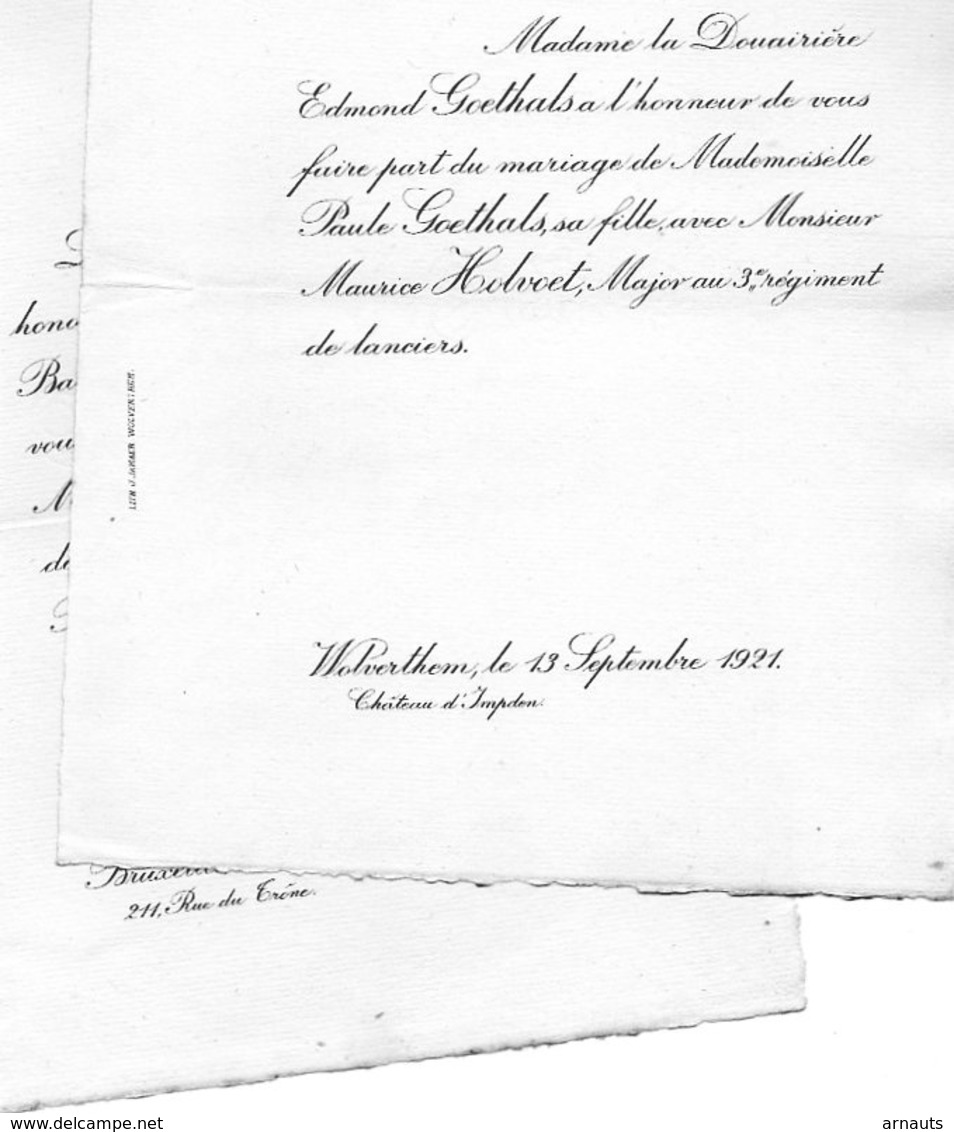 Madame la Douairière
Edmond Goethals a l'honneur de vous
faire part du mariage de Mademoiselle
Paule Goethals, sa fille, avec Monsieur
Maurice Holvoet, Major au 3e régiment
de lanciers.
Wolverthem, le 13 Septembre 1921.
Château d'Impden.
LITH J. WOLVERTHEM.
hono
Ba
vou
de
211, Rue du Trône.
www.delcampe.net
arnauts